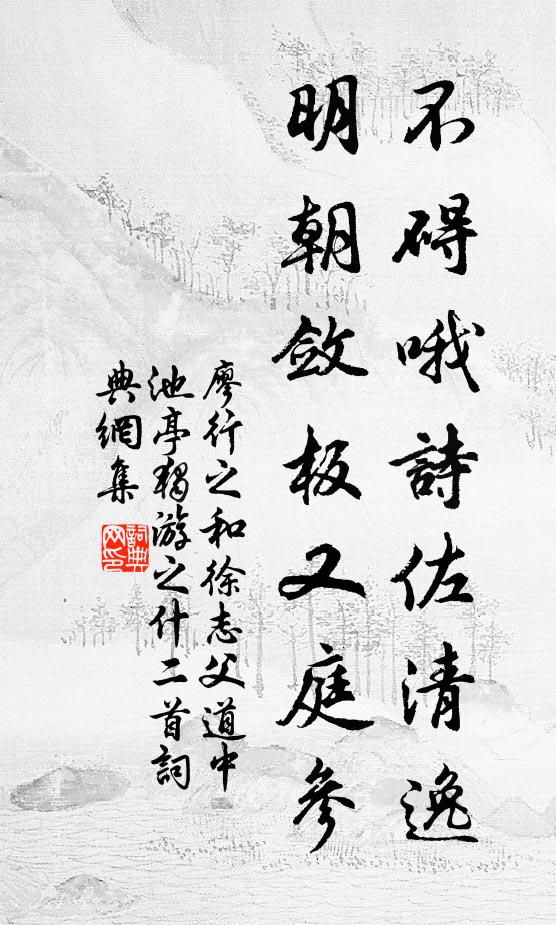 不碍哦詩佐清逸
明朝斂板又庭參
廖行之和徐志父道中
池亭獨游之什二首詞
典網集
詞典网印